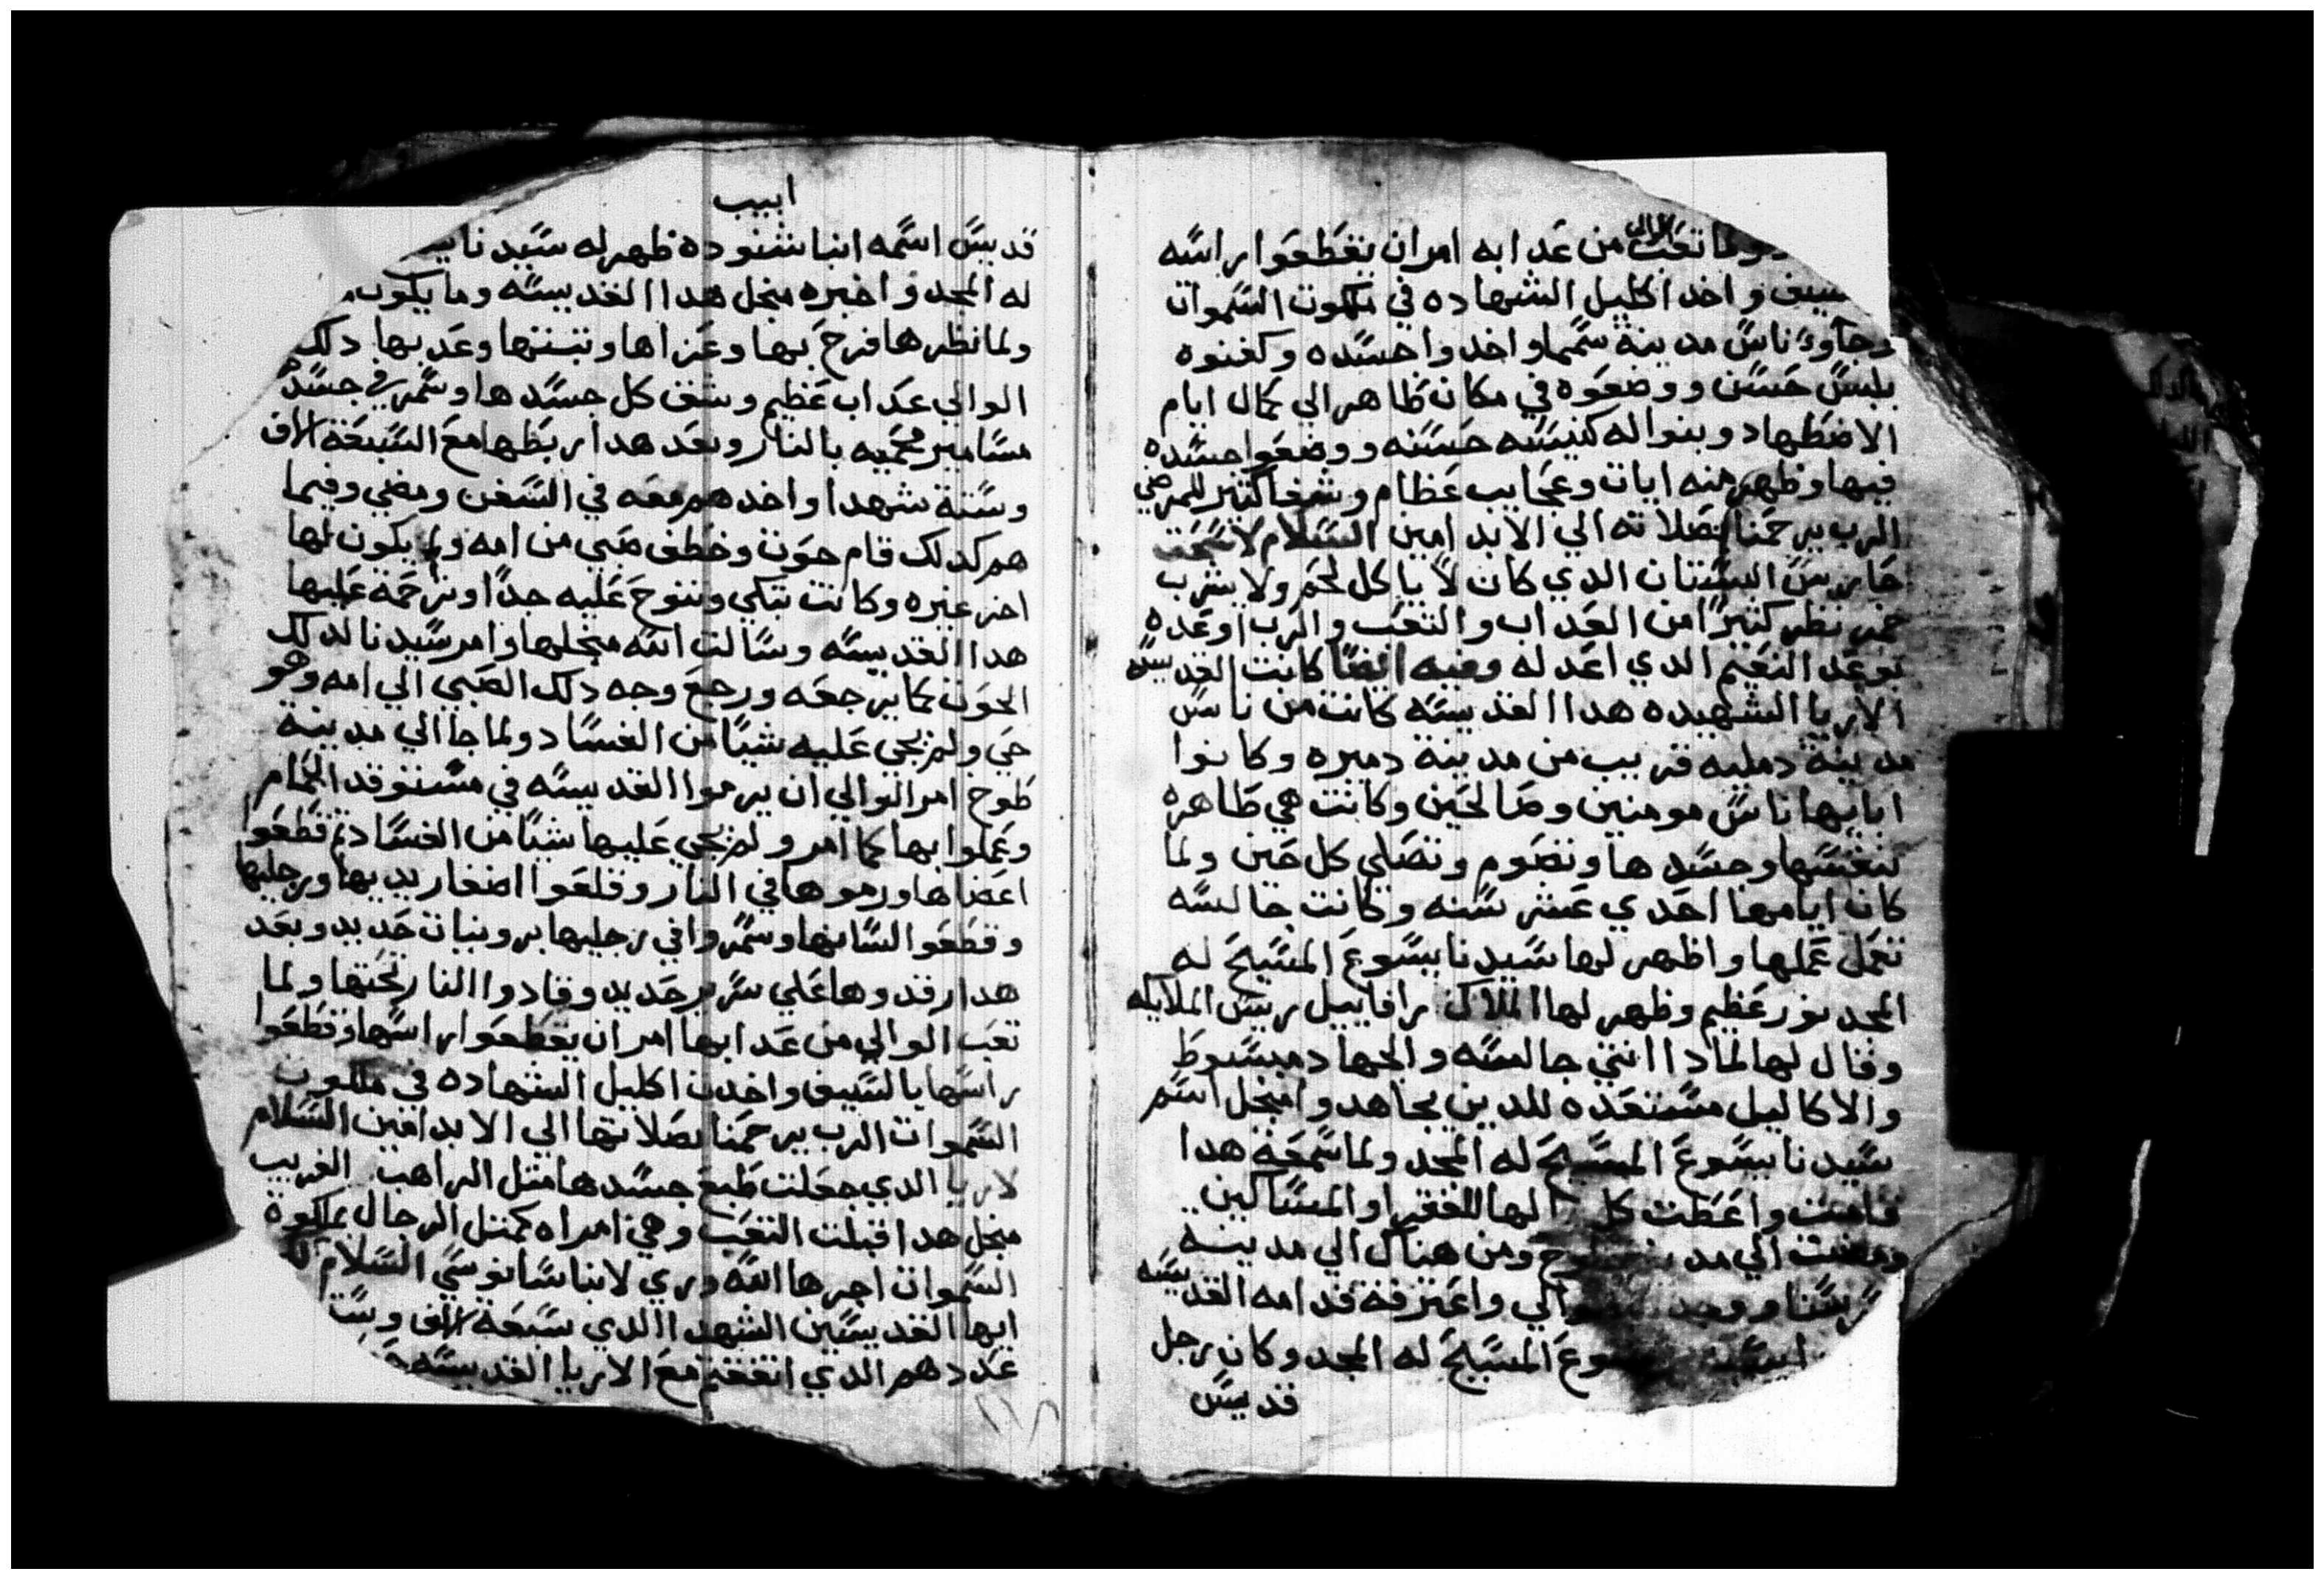 ولما تعب الوالي من عدابه امر ان يقطعوا راسه
واخد اكليل الشهاده في ملكوت السموات
وجاوء ناس مدينة شما واخدوا جسده وكفنوه
بلبس حسن ووضعوه في مكان طاهر الي كمال ايام
الاضطهاد وبنوا له كنيسه حسنه ووضعوا جسده
فيها وظهر منه ايات وعجايب عظام وشفا كتير للمرضي
الرب يرحمنا بصلاته الي الابد امين السلام لاسحق
حارس البستان الدي كان لا ياكل لحم ولا يشرب
خمر نظر كتيرًا من العداب والتعب والرب اوعده
بوعد النعيم الدي اعد له وفيه ايضًا كانت القديسه
الاريا الشهيده هدا القديسه كانت من ناس
مدينة دمليه قريب من مدينة دميره وكانوا
ابايها ناس مومنين وصالحين وكانت هي طاهره
لنفسها وجسدها وتصوم وتصلي كل حين ولما
كان ايامها احدي عشر سنه وكانت جالسه
تعمل عملها واظهر لها سيدنا يسوع المسيح له
المجد نور عظيم وظهر لها الملاك رافاييل رييس الملايكه
وقال لها لمادا انتي جالسه والجهاد مبسوط
والاكاليل مستعده للدين يجاهدوا منجل اسم
سيدنا يسوع المسيح له المجد ولما سمعة هدا
قامت واعطت كل لها للفقرا والمساكين
ومضت الي ومن هناك الي مدينة
والي واعترفة قدامه القديسه
المسيح له المجد وكان رجل
قديس
ابيب
قديس اسمه انبا شنوده ظهر له سيدنا
له المجد واخبره منجل هدا القديسه وما يكون
ولما نظرها فرح بها وعزاها وتبتها وعدبها دلك
الوالي عداب عظيم وشق كل جسدها وسمر في جسد
مسامير محميه بالنار وبعد هدا ربطها مع السبعة الاف
وستة شهدا واخدهم معه في السفن ومضي وفيما
هم كدلك قام حوت وخطف صبي من امه ولم يكون لها
اخر غيره وكانت تبكي وتنوح عليه جدًا وترحمة عليها
هدا القديسه وسالت الله منجلها وامر سيدنا لدلك
الحوت كما يرجعه ورجع وجه دلك الصبي الي امه وهو
حي ولم يجي عليه شيًا من الفساد ولما جا الي مدينة
طوخ امر الوالي ان يرموا القديسه في مستوقد الحمام
وعملوا بها كما امر ولم يجي عليها شيًا من الفساد تم قطعوا
اعضاها ورموها في النار وقلعوا اضفار يديها ورجليها
وقطعوا لسانها وسمروا في رجليها برونيات حديد وبعد
هدا رقدوها علي سرير حديد وقادوا النار تحتها ولما
تعب الوالي من عدابها امر ان يقطعوا راسها وقطعوا
راسها بالسيف واخدت اكليل الشهاده في ملكوت
السموات الرب يرحمنا بصلاتها الي الابد امين السلام
لاريا الدي جعلت طبع جسدها متل الراهب الغريب
منجل هدا قبلت التعب وهي امراه كمتل الرجال بملكوة
السموات اجرها الله دري لانبا سانوسي السلام
ايها القديسين الشهدا الدي سبعة الاف وست
عددهم الدي اتفقتم مع الاريا القديسه